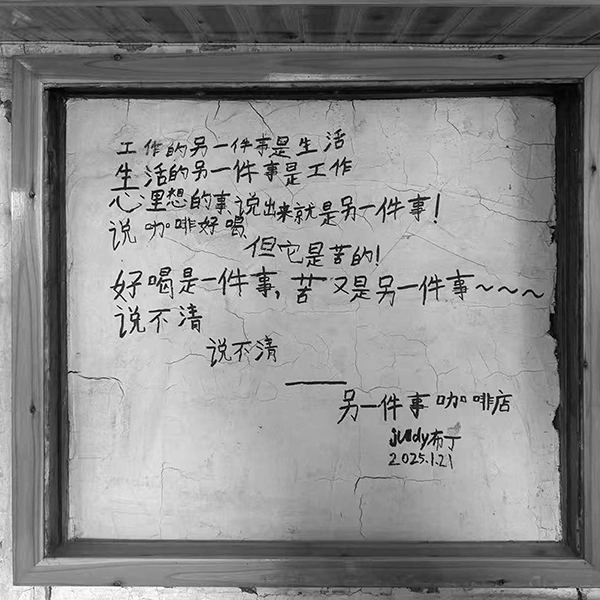 工作的另一件事是生活
生活的另一件事是工作
心里想的事说出来就是另一件事！
说咖啡好喝
但它是苦的！
好喝是一件事，苦又是另一件事～～～
说不清
说不清
——
另一件事咖啡店
judy布丁
2025.1.21